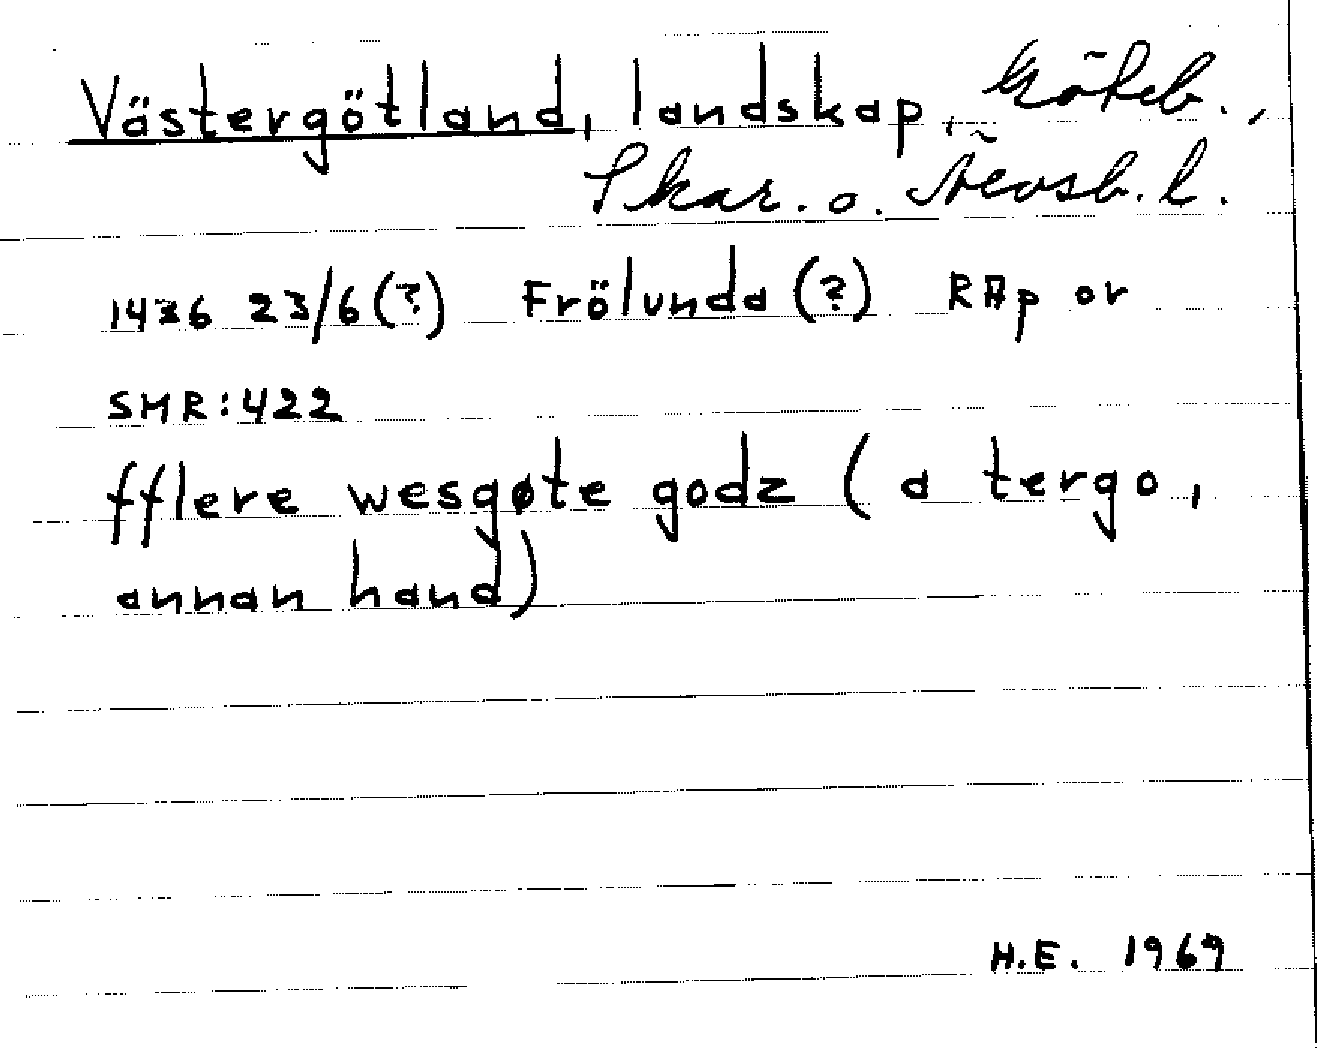 Västergötland, landskap, Göteb.,
Skar. o. Älvsb. l.
1436 23/6(?) Frölunda (?) RAp or
SMR:422
fflere wesgøte godz (a tergo,
annan hand)
H.E. 1969